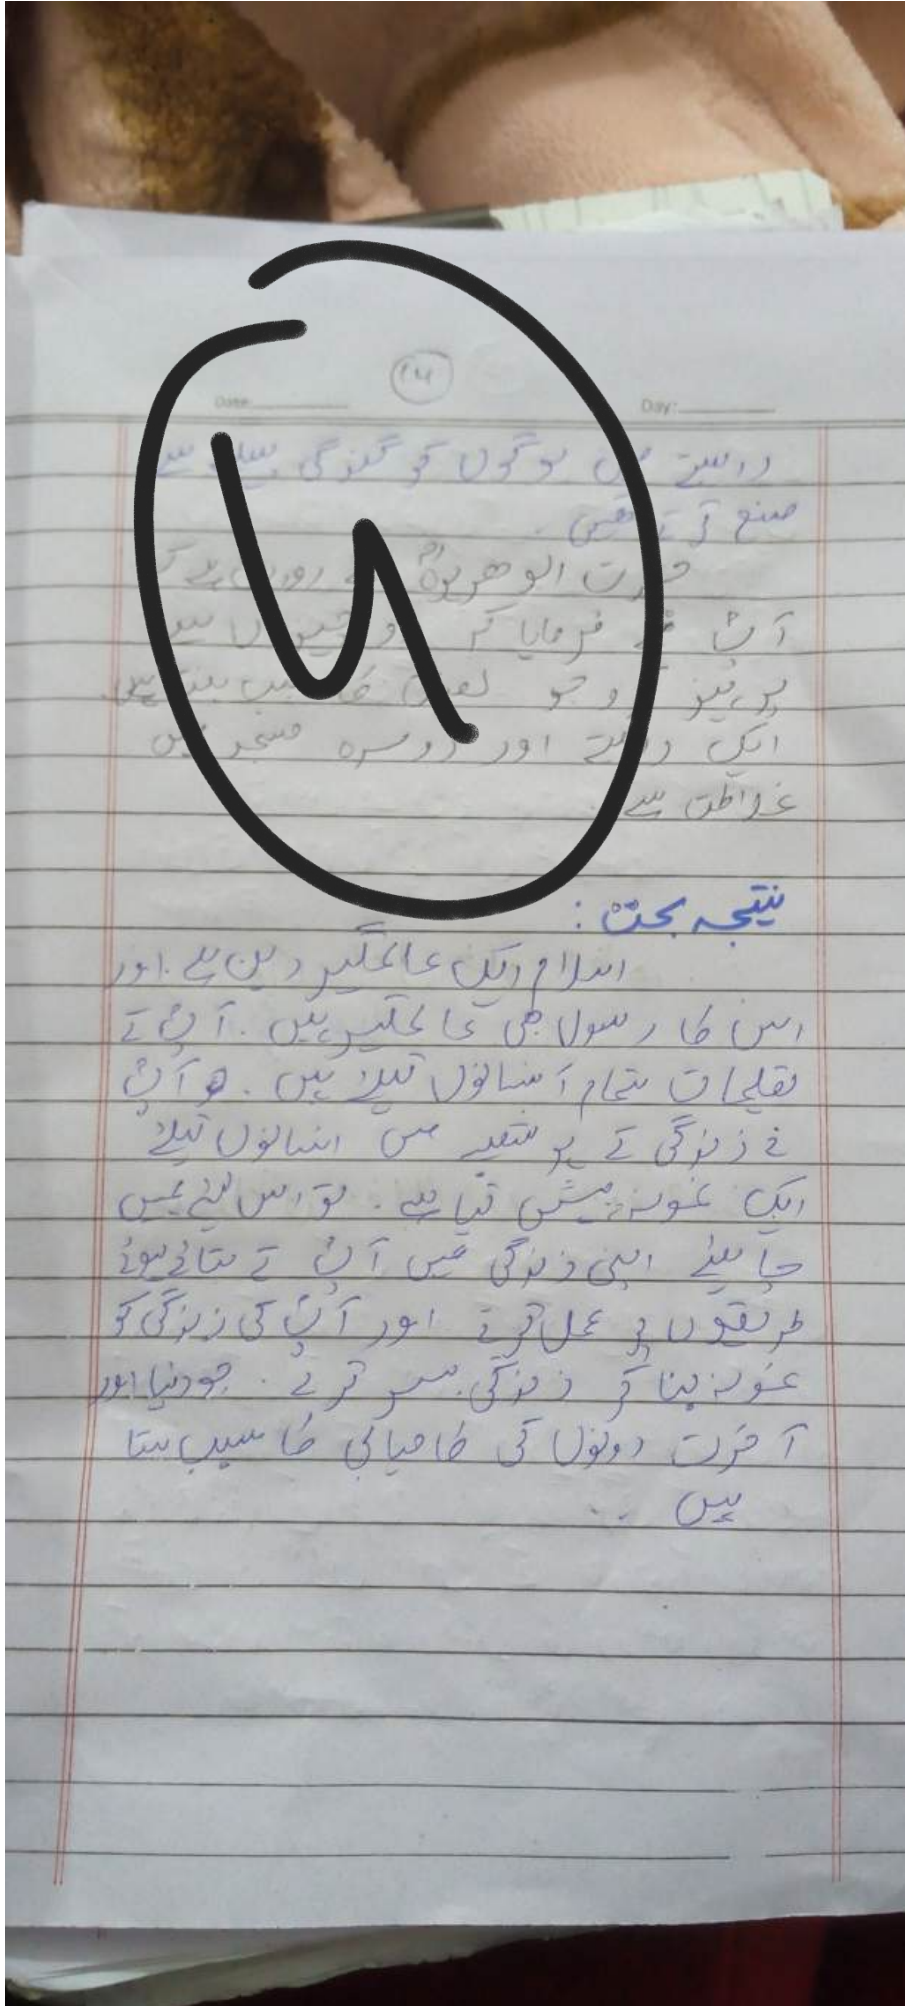 14
Date: Day:
راستے میں لوگوں کو گندگی سے
منع کرتے تھیں .
ابو ھریرہؓ روایت ہے کہ
آپؐ نے فرمایا کہ
پرہیز کرو جو لعنت کا سبب بنتے ہیں.
ایک راستے اور دوسرہ مسجد میں
غلاظت سے .
نتیجہ بحث :
اسلام ایک عالمگیر دین ہے . اور
اس کا رسول بھی عالمگیر ہیں . آپؐ کے
تعلیمات تمام انسانوں کیلئے ہیں . آپؐ
نے زندگی کے ہر شعبے میں انسانوں کیلئے
ایک نمونہ پیش کیا ہے . تو اس لیئے ہمیں
چاہیئے اپنی زندگی میں آپؐ کے بتائے ہوئے
طریقوں پر عمل کرتے اور آپؐ کی زندگی کو
نمونہ بنا کر زندگی بسر کرے . جو دنیا اور
آخرت دونوں کی کامیابی کا سبب بنتا
ہیں ..